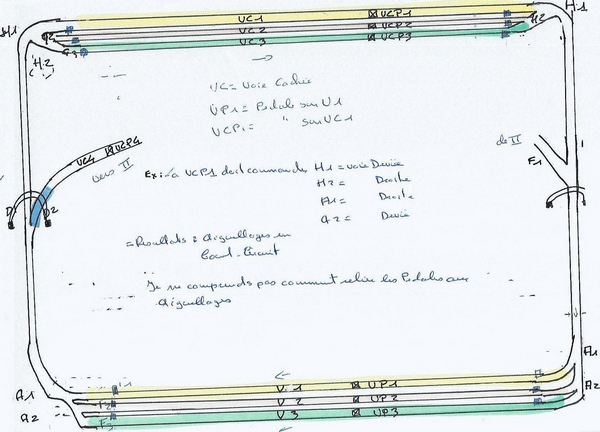 H1
VC1 ⊠ VCP1
H1
VC2 ⊠ VCP2
H2
VC3 ⊠ VCP3
H2
VC = Voie Cachée
VP1 = Pédale sur V1
VCP1 = " sur VC1
VC4 ⊠ VCP4
vers II
de II
F1
Ex: à VCP1 doit commander H1 = voie Deviée
H2 = Droite
A1 = Droite
A2 = Deviée
D2
= Résultats : Aiguillages en
Court-Circuit
Je ne comprends pas comment relier les Pédales aux
Aiguillages
A1
A1
V 1 ⊠ VP1
A2
F2
V 2 ⊠ VP2
A2
F3
V 3 ⊠ VP3